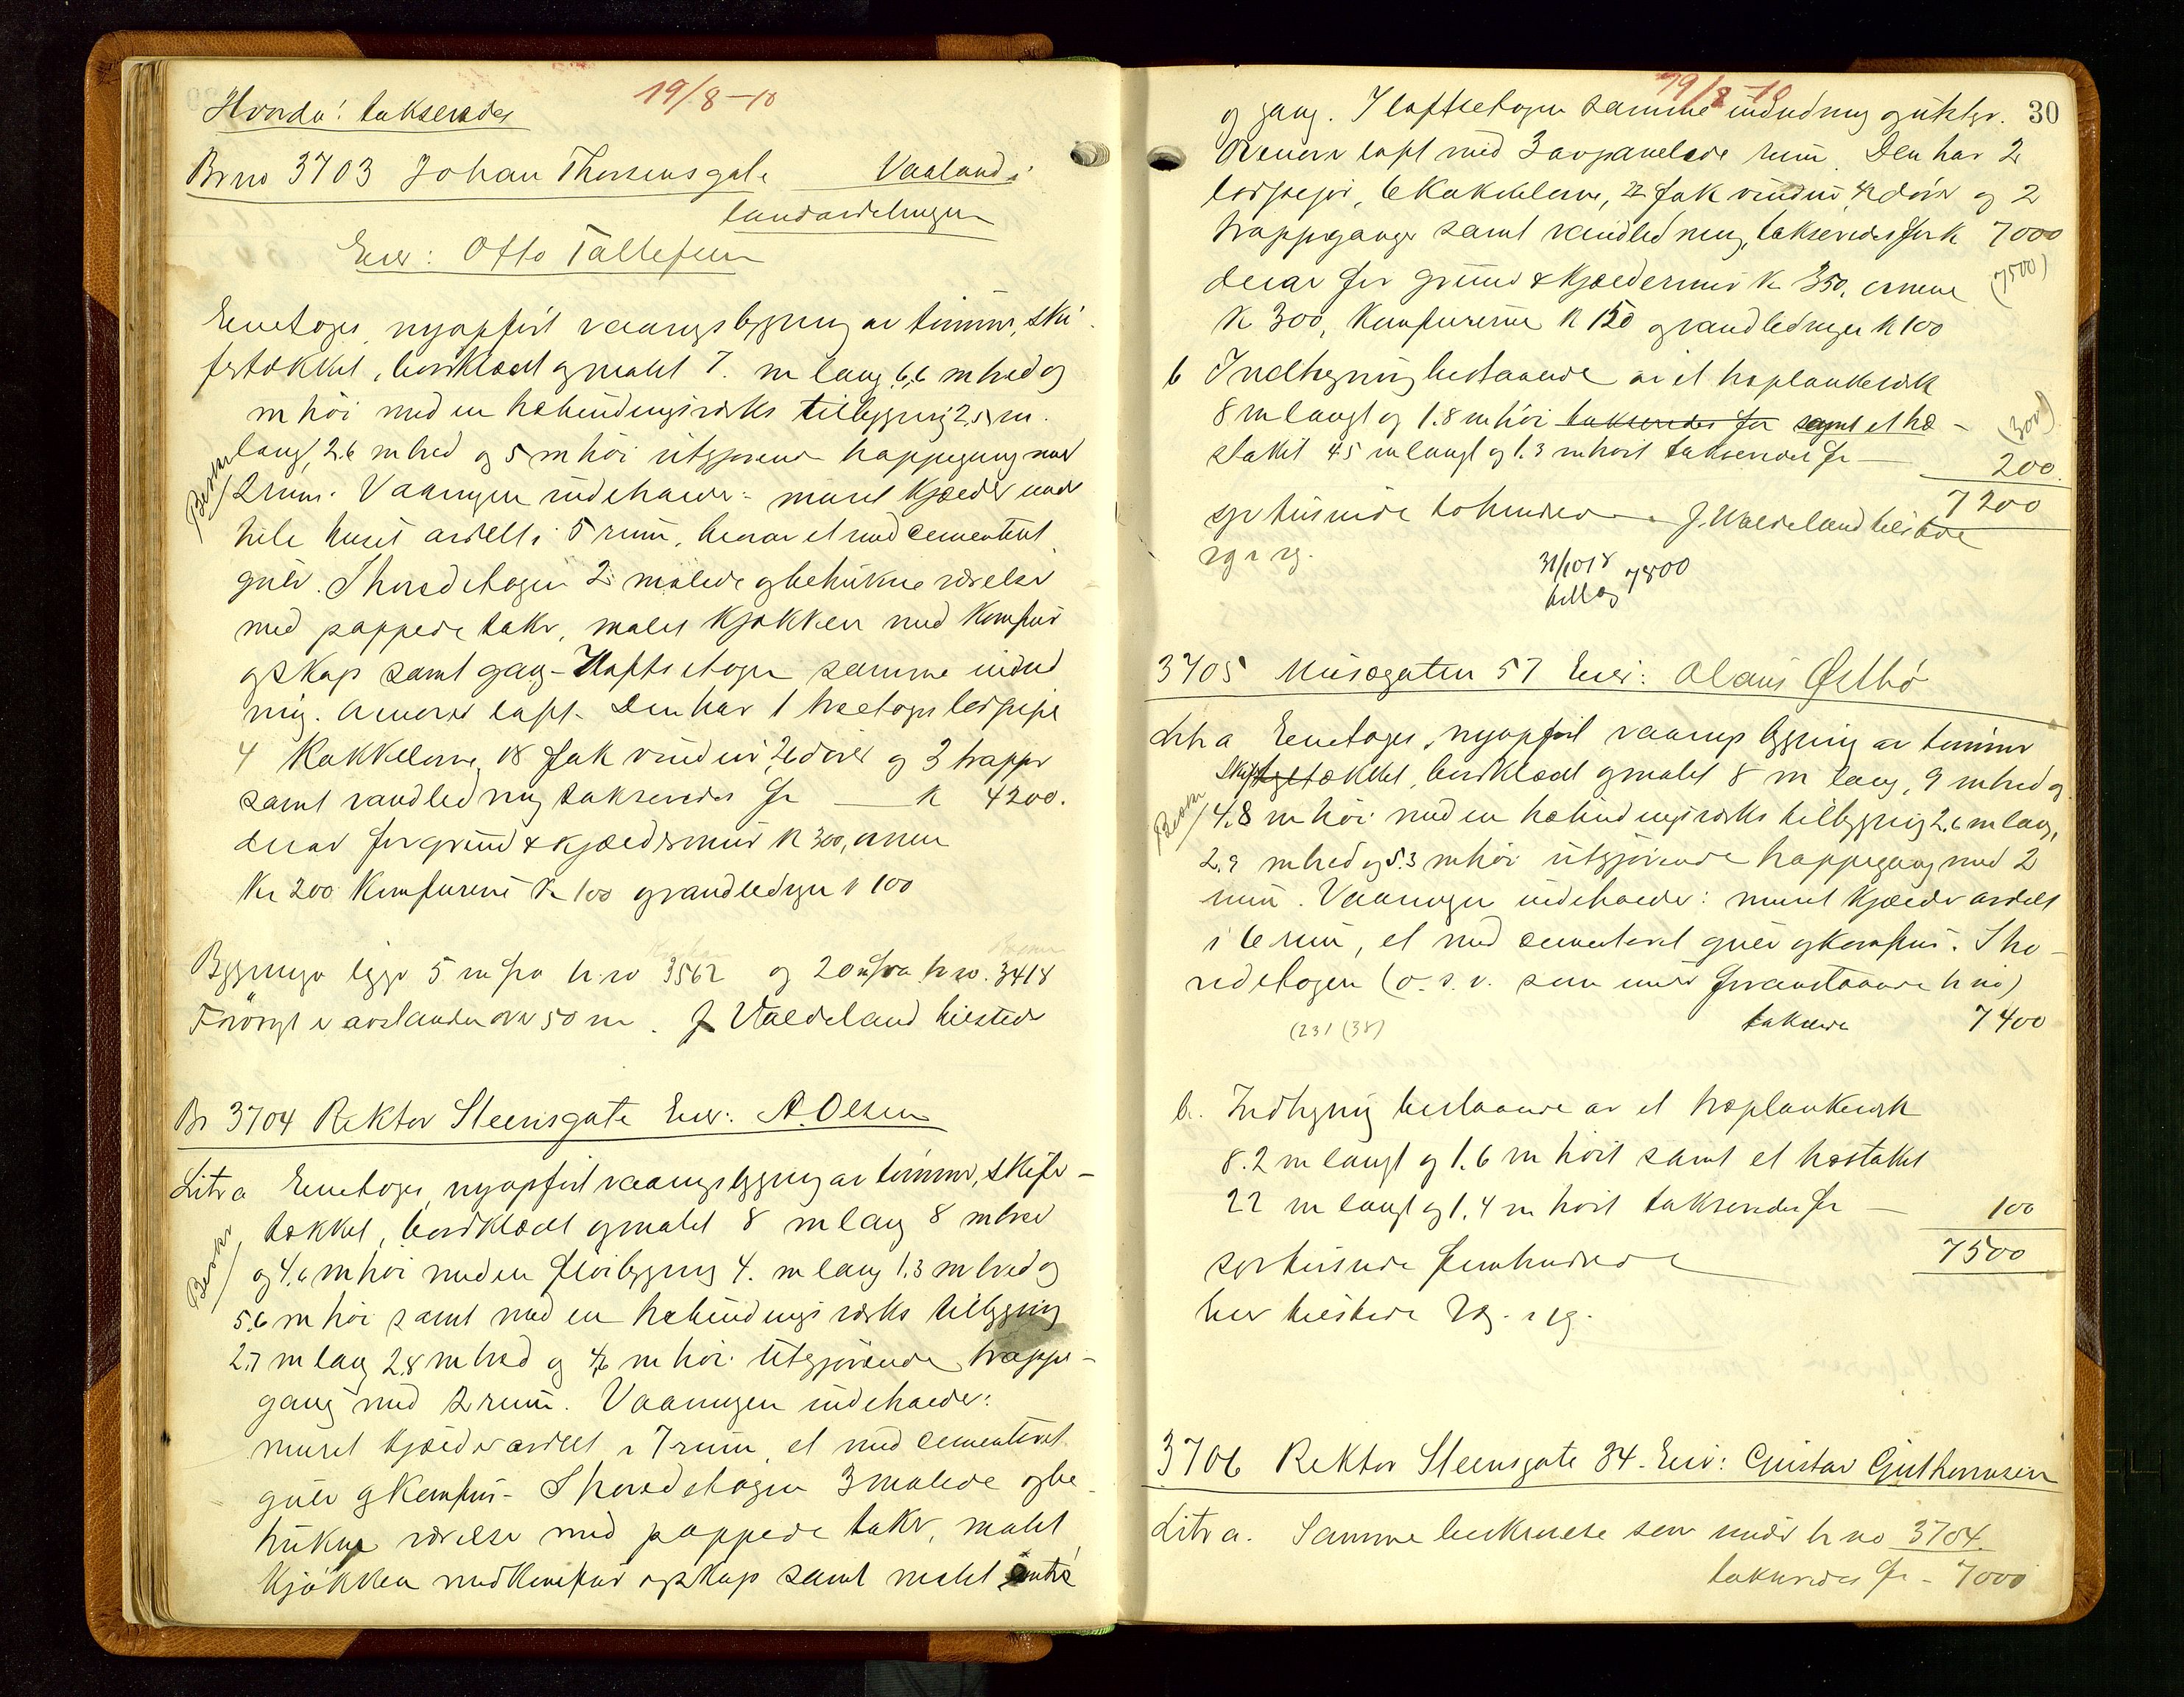 19/8-10
Hvorda: takseredes
Brno 3703 Johan Thorsensgate Vaaland i
landavdelingen
Eier: Otto Tallefsen
Enetages nyopført vaaningsbygning av tømmer, ski-
fertækket, bordklædt og malet 7. m lang 6,6 m bred og
m høi med en træbindingsverks tilbygning 2,5 m.
Beskr
lang, 2.6 m bred og 5 m høi utgjørende trappegang med
2 rum. Vaaningen indeholder: muret kjælder under
hele huset avdelt i 5 rum, herav et med cementert
gulv. I hovedetagen 2 malede og betrukne værelser
med pappede taker, malet kjøkken med komfur
og skap samt gang - I loftsetagen samme indred
ning. Øverst loft. Den har 1 treetages lerpipe
4 kakkelovne, 18 fak vinduer, 26 dører og 3 trapper
samt vandledning takseredes for k 4200.
derav for grund & kjældermur k 300, ovnene
Kr 200 Komfurene k 100 og vandledngen k 100
Bygningen ligger 5 m fra br.no 3562 og 20 m fra br.no. 3418
Forøvrigt er avstanden over 50 m. J Valdeland tilstede
Br 3704 Rektor Steensgate Eier: A. Olsen
Litr a Enetages, nyopført vaaningsbygning av tømmer, skifer-
tækket, bordklædt og malet 8 m lang 8 m bred
Beskr
og 4,6 m høi med en fløibygning 4. m lang 1.3 m bred og
5,6 m høi samt med en træbindingsverks tilbygning
2.7 m lang 2.8 m bred og 4,6 m høi utgjørende trappe-
gang med 2 rum. Vaaningen indeholder:
muret kjælder avdelt i 7 rum, et med cementeret
gulv og komfur - I hovedetagen 3 malede og be-
trukne værelser med pappede taker, malet
kjøkken med komfur og skap samt malet entre
19/8-10
30
og gang. I loftsetagen samme indredning og utstyr.
Øverst loft med 3 avpanelede rum. Den har 2
lerpiper, 6 kakkelovne, 22 fak vinduer, 42 dører og 2
trappeganger samt vandledning, takseredes for k 7000
(7500)
derav for grund & kjældermur k 350, ovnene
k 300, Komfurerne k 150 og vandledngen k 100
b Indhegning bestaaende av et træplankeverk
8 m langt og 1.8 m høi takseredes for samt et træ-
(300)
stakit 45 m langt og 1.3 m høit takseredes for 200
7200
syvtusinde tohundred J. Waldeland tilstede
rg i rg.
31/1018
tillæg 7800
3705 Musegaten 57 Eier: Olaus Østbø
Litr a Enetages, nyopført vaaningsbygning av tømmer
Skifertækket, bordklædt og malet 8 m lang, 9 m bred og
Beskr
4.8 m høi med en træbindingsverks tilbygning 2.6 m lang,
2.9 m bred og 5.3 m høi utgjørende trappegang med 2
rum. Vaaningen indeholder: muret kjælder avdelt
i 6 rum, et med cementeret gulv og komfur. I ho-
vedetagen (o.s.v. som under foranstaaende br no)
(23) (38) takseres 7400
b. Indhegning bestaaende av et træplankeverk
8.2 m langt og 1.6 m høit samt et træstakit
22 m langt og 1.4 m høit takseredes for 100
7500
syvtusinde femhundrede
Eier tilstede rg. i rg.
3706 Rektor Steensgate 84. Eier: Gustav Guthormsen
Litr a. Samme beskrivelse som under br no 3704.
takseredes for - 7000